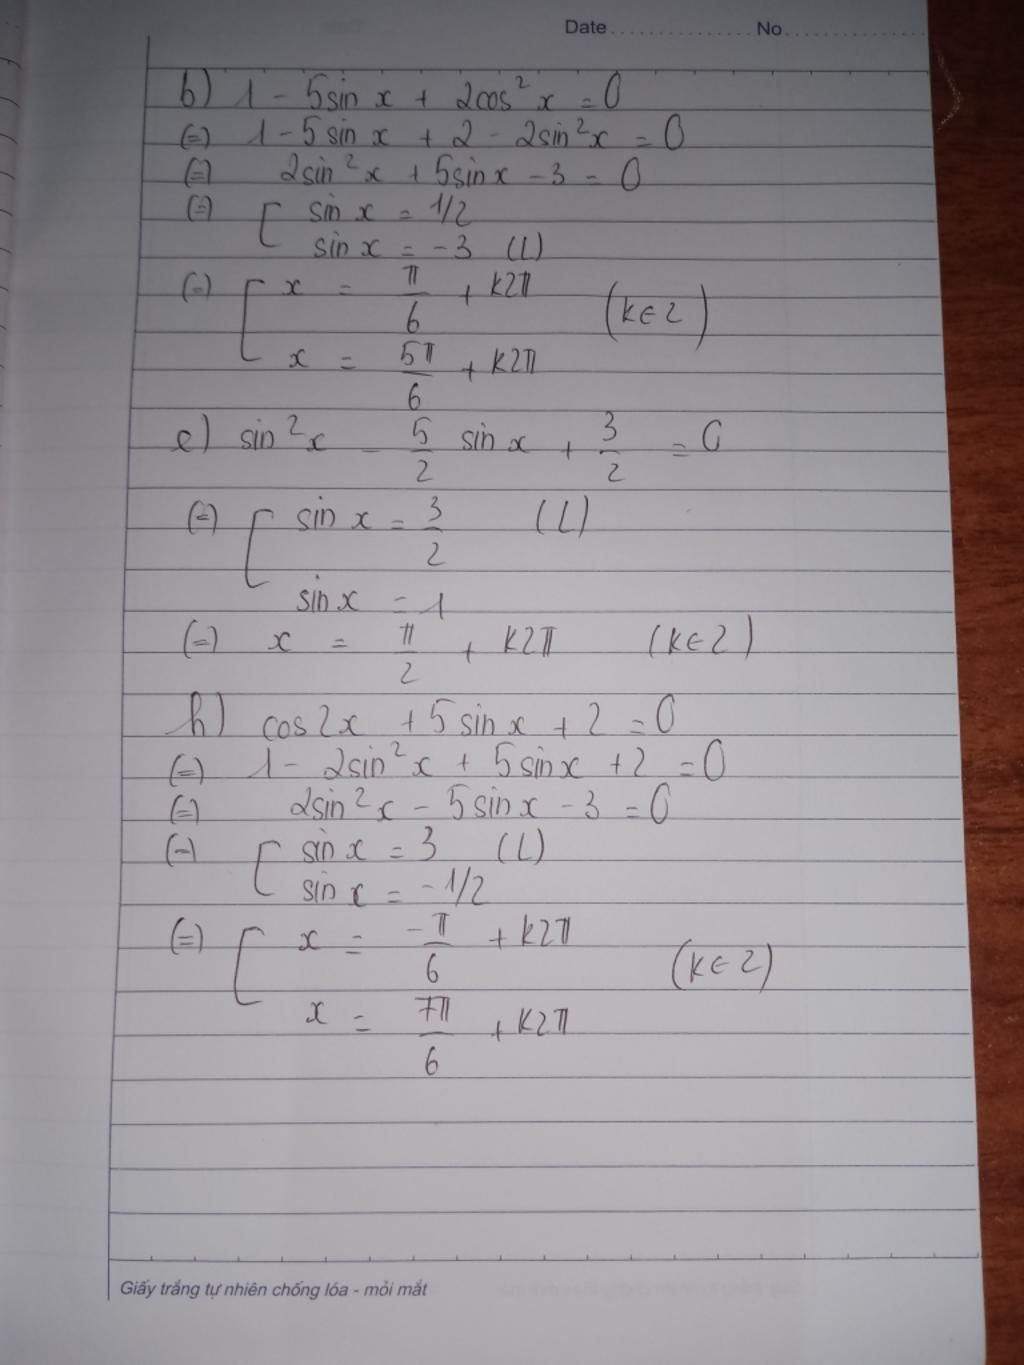 Date .................... No ....................
b) 1 - 5sin x + 2cos² x = 0
(=) 1 - 5 sin x + 2 - 2sin²x = 0
(=) 2sin² x + 5sinx - 3 = 0
(=) [ sin x = 1/2
sin x = -3 (L)
(=) [ x = π/6 + k2π
(k∈Z)
x = 5π/6 + k2π
e) sin²x - 5/2 sin x + 3/2 = 0
(=) [ sin x = 3/2 (L)
sin x = 1
(=) x = π/2 + k2π (k∈Z)
h) cos2x + 5 sin x + 2 = 0
(=) 1 - 2sin² x + 5 sinx + 2 = 0
(=) 2sin²x - 5sin x - 3 = 0
(=) [ sin x = 3 (L)
sin x = -1/2
(=) [ x = -π/6 + k2π
(k∈Z)
x = 7π/6 + k2π
Giấy trắng tự nhiên chống lóa - mỏi mắt